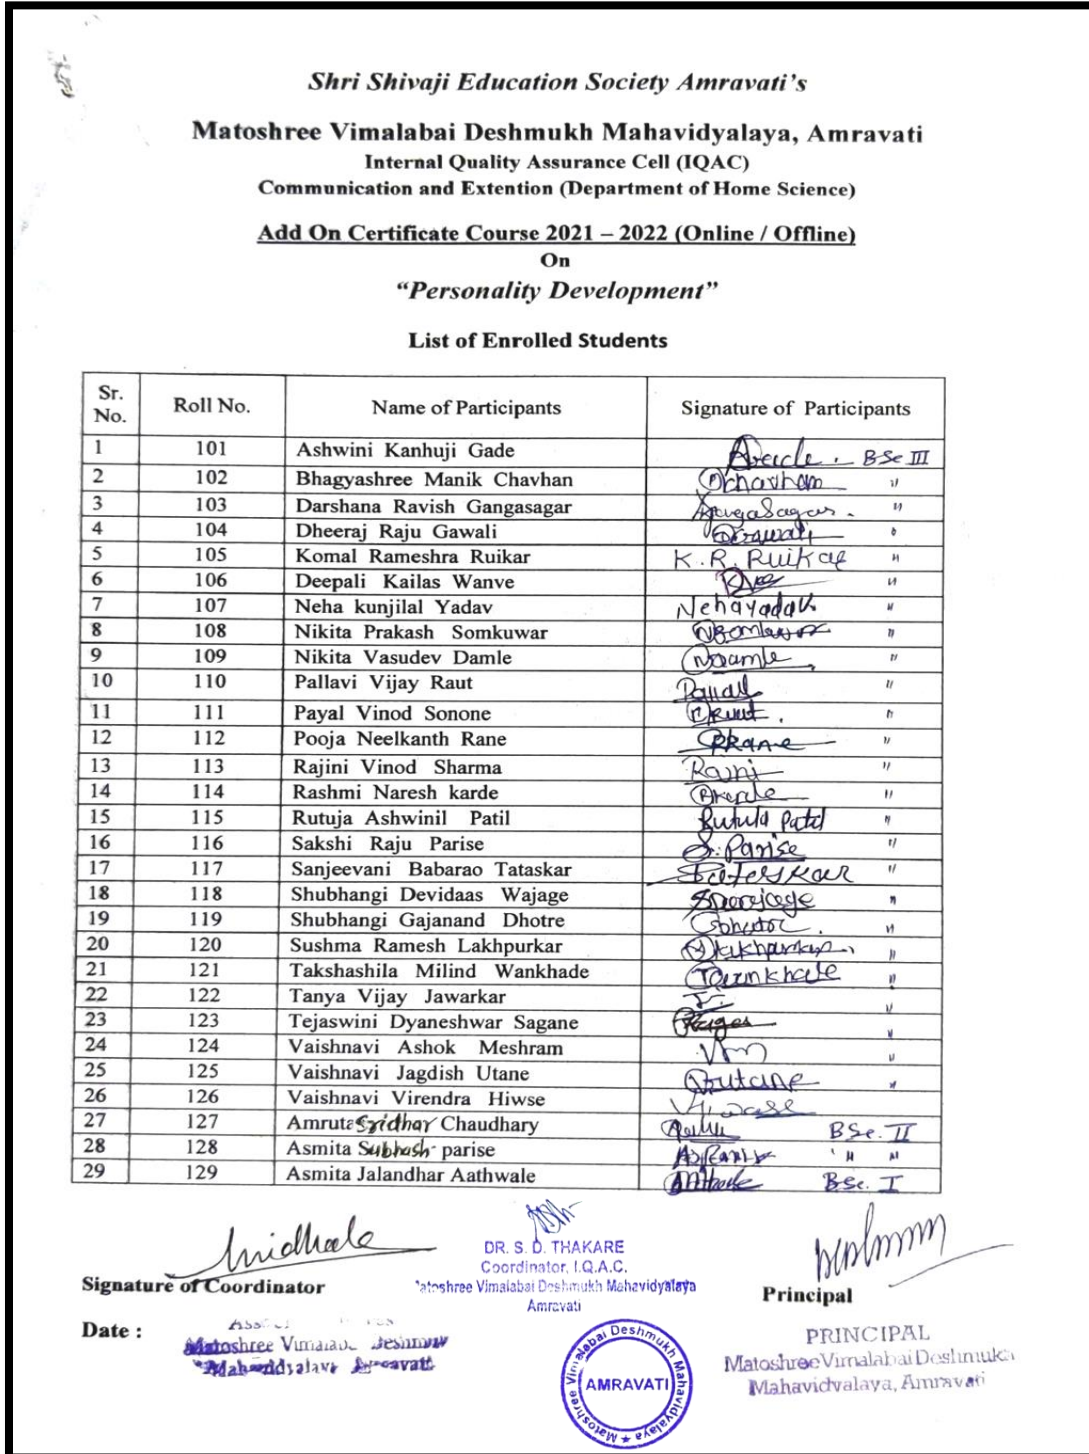 Shri Shivaji Education Society Amravati's
Matoshree Vimalabai Deshmukh Mahavidyalaya, Amravati
Internal Quality Assurance Cell (IQAC)
Communication and Extention (Department of Home Science)
Add On Certificate Course 2021 – 2022 (Online / Offline)
On
“Personality Development”
List of Enrolled Students
Sr. No. Roll No. Name of Participants Signature of Participants
1 101 Ashwini Kanhuji Gade BSc III
2 102 Bhagyashree Manik Chavhan "
3 103 Darshana Ravish Gangasagar "
4 104 Dheeraj Raju Gawali "
5 105 Komal Rameshra Ruikar K.R. Ruikar "
6 106 Deepali Kailas Wanve "
7 107 Neha kunjilal Yadav Nehayadav "
8 108 Nikita Prakash Somkuwar "
9 109 Nikita Vasudev Damle NDamle "
10 110 Pallavi Vijay Raut "
11 111 Payal Vinod Sonone "
12 112 Pooja Neelkanth Rane PRane "
13 113 Rajini Vinod Sharma "
14 114 Rashmi Naresh karde "
15 115 Rutuja Ashwinil Patil Patil "
16 116 Sakshi Raju Parise S. Parise "
17 117 Sanjeevani Babarao Tataskar "
18 118 Shubhangi Devidaas Wajage "
19 119 Shubhangi Gajanand Dhotre "
20 120 Sushma Ramesh Lakhpurkar "
21 121 Takshashila Milind Wankhade "
22 122 Tanya Vijay Jawarkar "
23 123 Tejaswini Dyaneshwar Sagane "
24 124 Vaishnavi Ashok Meshram "
25 125 Vaishnavi Jagdish Utane "
26 126 Vaishnavi Virendra Hiwse
27 127 Amruta Sridhar Chaudhary BSc. II
28 128 Asmita Subhash parise " "
29 129 Asmita Jalandhar Aathwale BSc. I
DR. S. D. THAKARE
Coordinator, I.Q.A.C.
Matoshree Vimalabai Deshmukh Mahavidyalaya
Amravati
Signature of Coordinator
Principal
Date :
Matoshree Vimalabai Deshmukh
Mahavidyalaya Amravati
PRINCIPAL
Matoshree Vimalabai Deshmukh
Mahavidyalaya, Amravati
Matoshree Vimalabai Deshmukh Mahavidyalaya
AMRAVATI